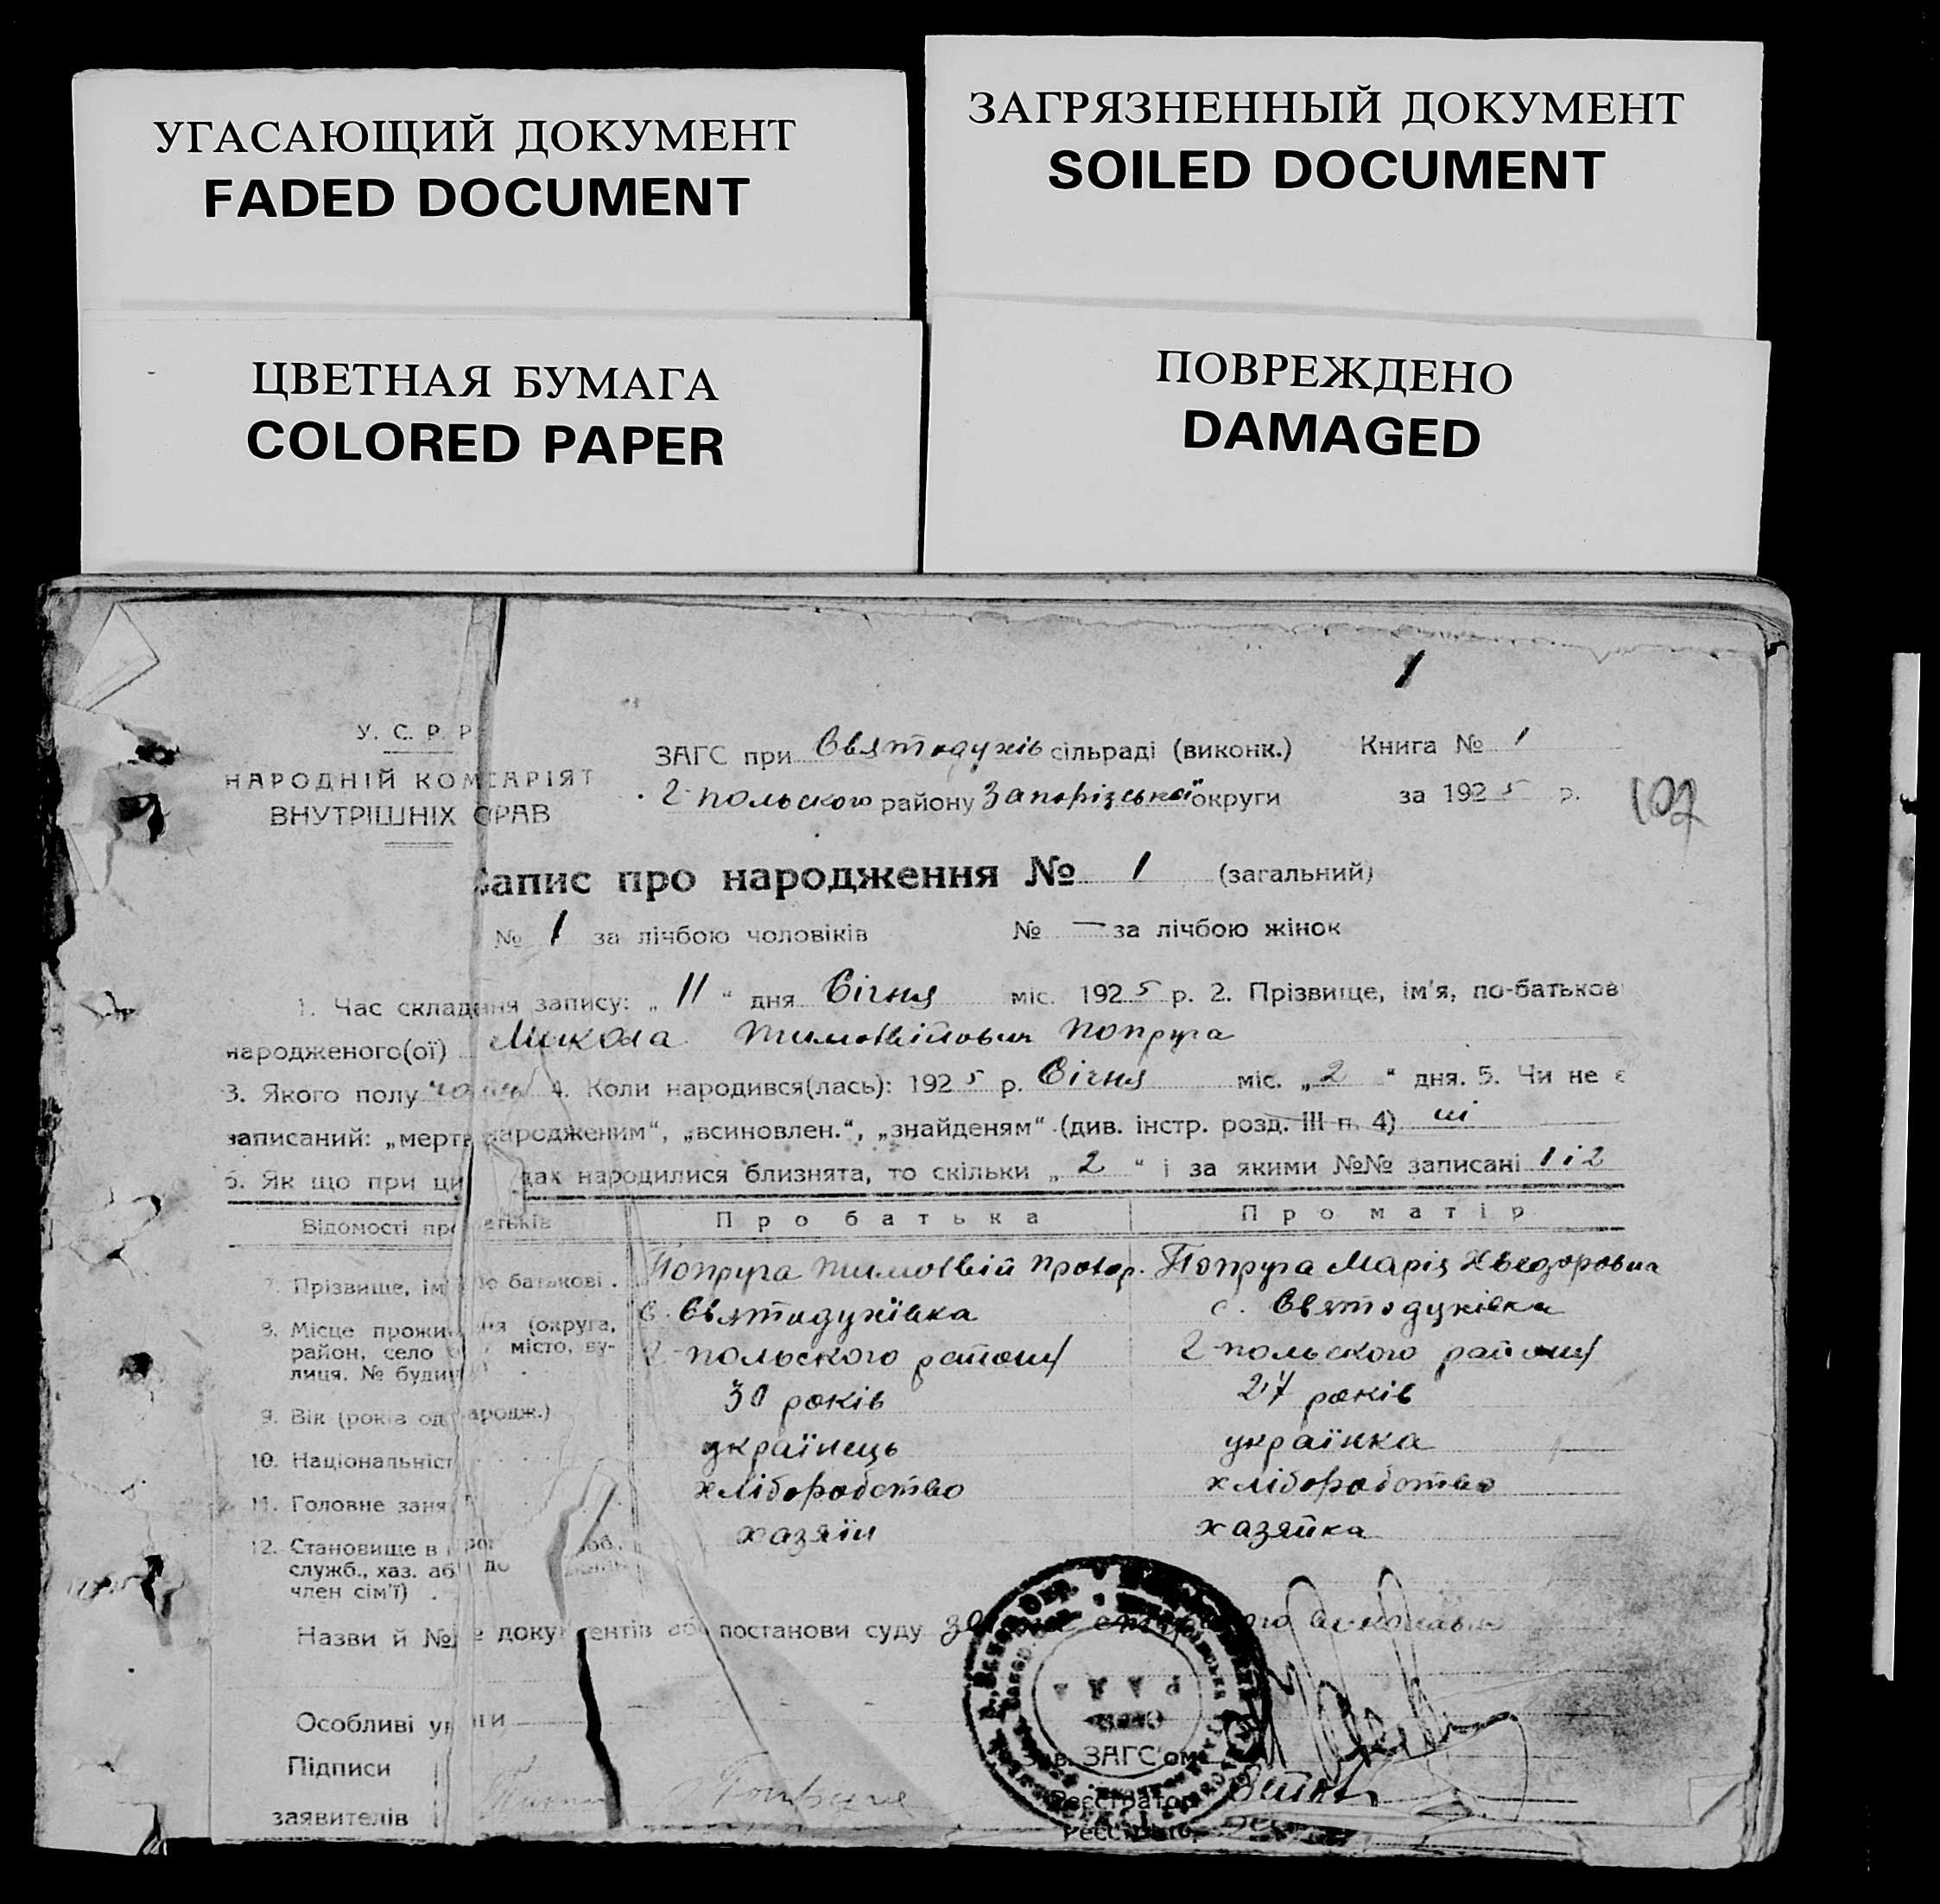 УГАСАЮЩИЙ ДОКУМЕНТ
FADED DOCUMENT
ЗАГРЯЗНЕННЫЙ ДОКУМЕНТ
SOILED DOCUMENT
ЦВЕТНАЯ БУМАГА
COLORED PAPER
ПОВРЕЖДЕНО
DAMAGED
1
У. С. Р. Р.
НАРОДНІЙ КОМІСАРІЯТ
ВНУТРІШНІХ СПРАВ
ЗАГС при Святодухів сільраді (виконк.) Книга № 1
2-польского району Запорізської округи за 1925 р.
107
Запис про народження № 1 (загальний)
№ 1 за лічбою чоловіків № — за лічбою жінок
1. Час складання запису: „11" дня Січня міс. 1925 р. 2. Прізвище, ім'я, по-батьков
народженого(ої) Микола Тимотвійович Попруга
3. Якого полу чолов 4. Коли народився(лась): 1925 р. Січня міс. „2" дня. 5. Чи не є
записаний: „мертвонародженим", „всиновлен.", „знайденям" (див. інстр. розд. III п. 4) ні
6. Як що при ци дах народилися близнята, то скільки „2" і за якими №№ записані 1 і 2
Відомості про батьків Про батька Про матір
7. Прізвище, ім'я по батькові . Попруга Тимотвій Прокор. Попруга Марія Хведоровна
8. Місце проживання (округа, с. Святодухівка с. Святодухівка
район, село або місто, ву- 2-польского району 2-польского району
лиця. № будинку)
9. Вік (років од народж.) 30 років 27 років
10. Національність українець українка
11. Головне заня хліборобство хліборобство
12. Становище в хазяїн хазяйка
служб., хаз. аб до
член сім'ї) .
Назви й №№ документів або постанови суду
Особливі уваги
Підписи
Зав. ЗАГС'ом
заявителів
Реєстратор